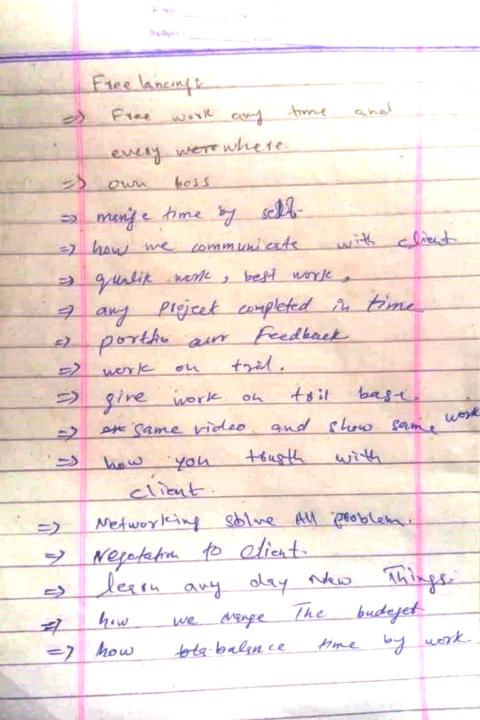 Free lancing:
=> Free work any time and
every werewhere.
=> own boss
=> mange time by self
=> how we communicate with client
=> qualik work, best work,
=> any project completed in time
=> portho aur Feedback
=> work on tril.
=> give work on tril base.
=> same video and show same work
=> how you trusth with
client.
=> Networking solve All problem.
=> Negotation to Client.
=> learn any day New Things.
=> how we mange The budejet
=> how balance time by work.